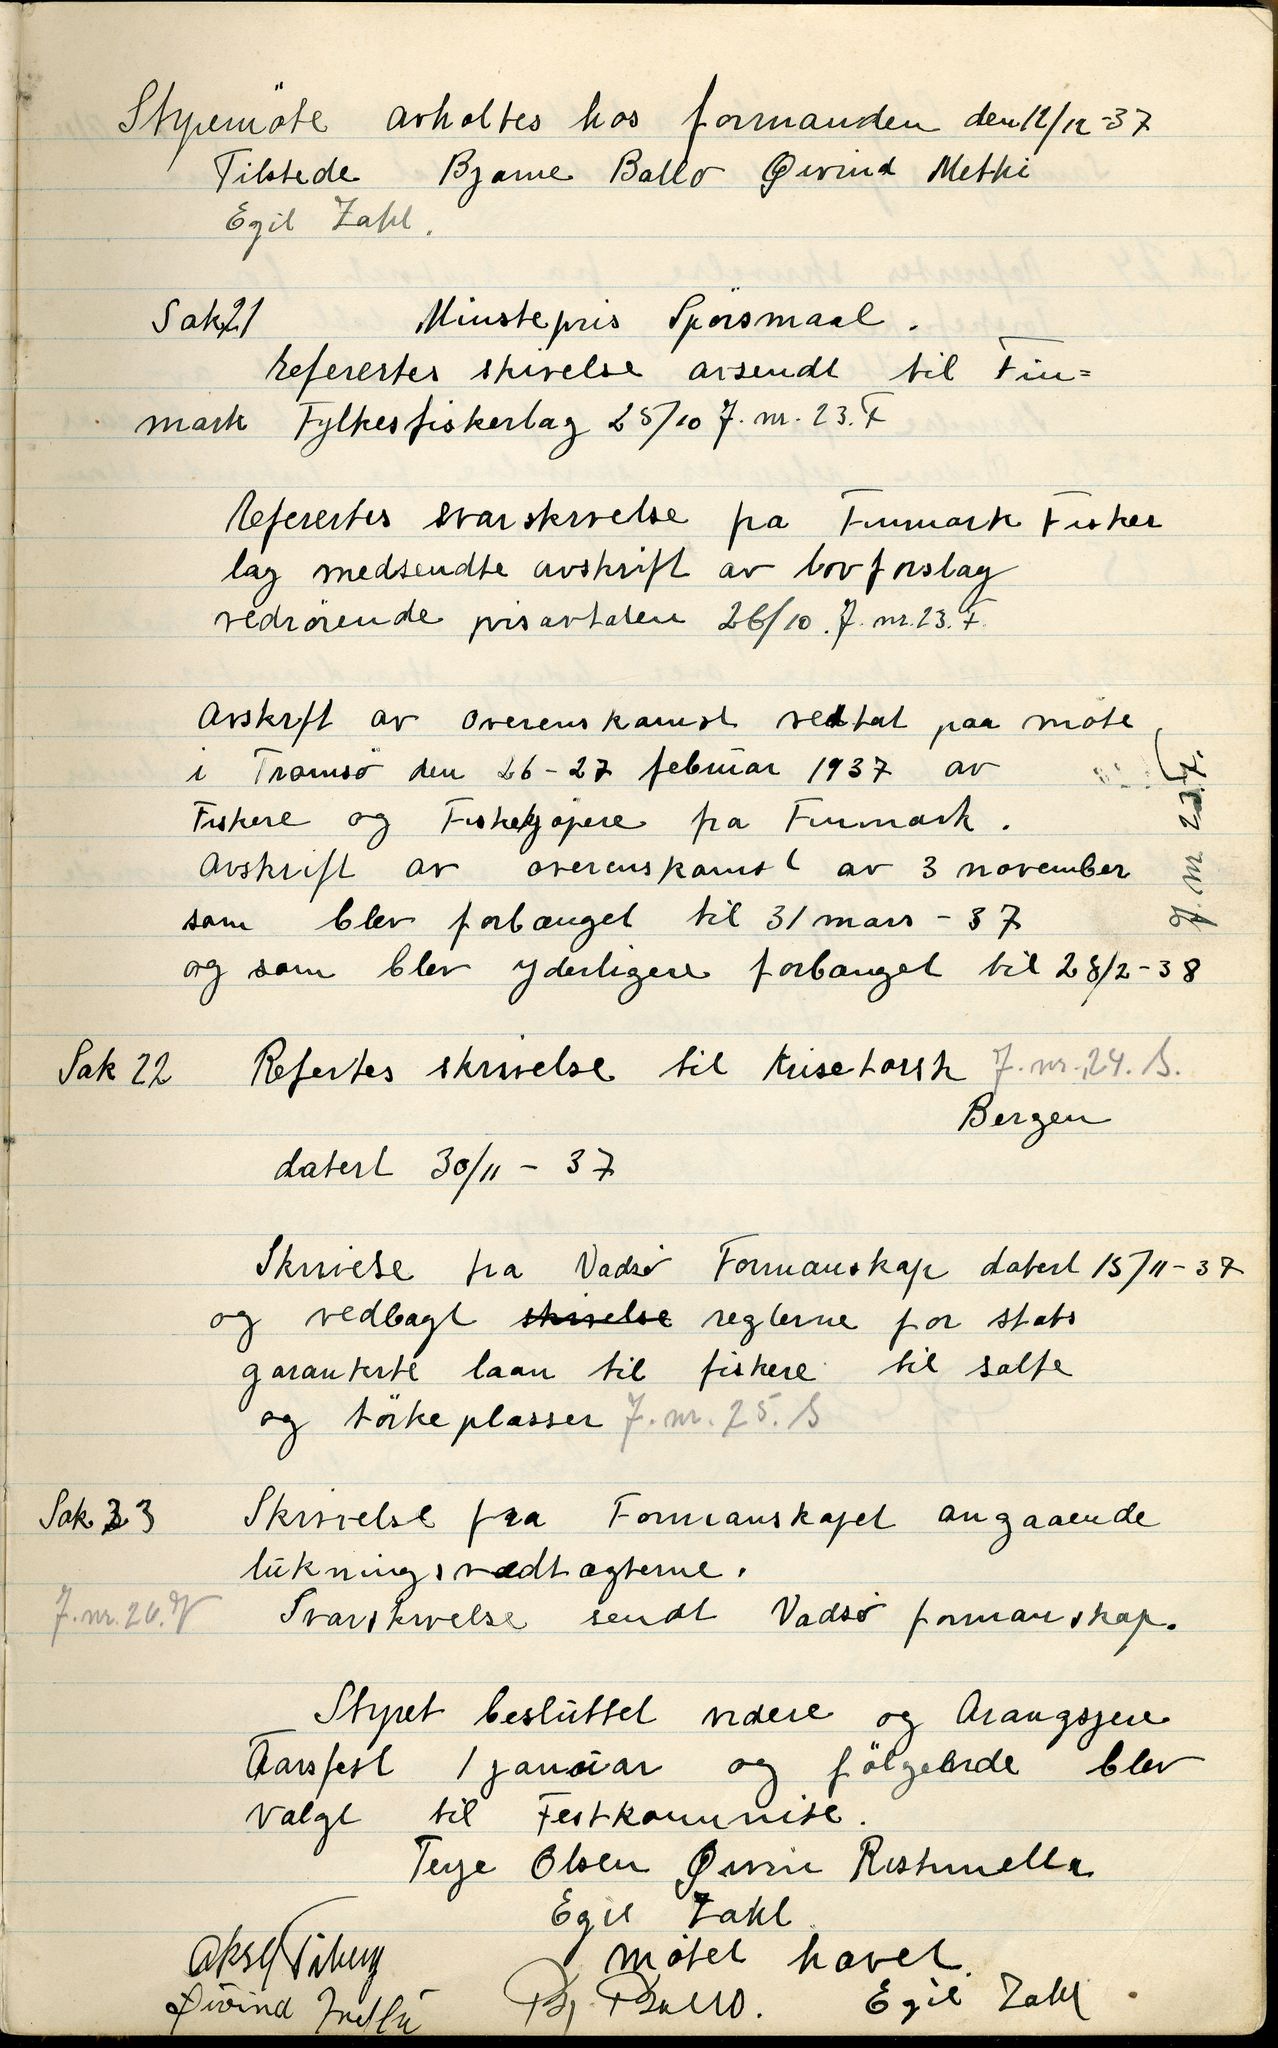 Styremöte avholtes hos formanden den 12/12-37
Tilstede Bjarne Ballo Øivind Methi
Egil Zahl.
Sak 21 Minstepris Spörsmaal.
Referertes skivelse avsendt til Fin=
mark Fylkesfiskerlag 25/10 J. nr. 23. F
Referertes svarskrivelse fra Finmark Fisker
lag medsendte avskrift av lovforslag
vedrörende prisavtalen 26/10. J. nr. 23. F.
Avskrift av overenskomst vedtat paa möte
i Tromsö den 26-27 februar 1937 av
Fiskere og Fiskekjöpere fra Finmark.
Avskrift av overenskomst av 3 november
som blev forlænget til 31 mars - 37
og som blev yderligere forlænget til 28/2-38
J. nr 23. F.
Sak 22 Refertes skrivelse til Krisetorsk J. nr. 24. S.
Bergen
datert 30/11 - 37
Skrivelse fra Vadsö Formanskap datert 15/11-37
og vedlagt skrivelse reglerne for stats
garanterte laan til fiskere til salte
og törkeplasser J. nr. 25. S
Sak 23 Skrivelse fra Formanskapet angaaende
lukningsvedtægterne.
J. nr. 26. V Svarskrivelse sendt Vadsö formanskap.
Styret besluttet videre og Arangsjere
Aarsfest 1 januar og fölgende blev
valgt til Festkommite.
Terje Olsen Øivin Ristimella
Egil Zahl
Mötet hævet.
Aksel
Øivind Methi Bj. Ballo. Egil Zahl